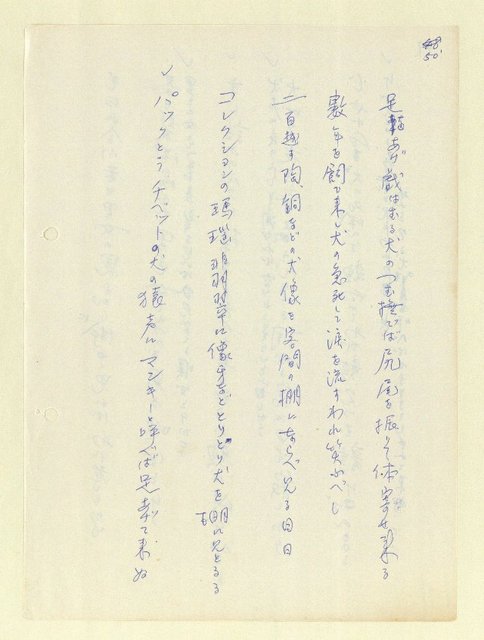 50.
足軽あげ戯はむる犬のつむ撫でば尻尾を振りて体寄せ来る
数年を飼ひ来し犬の急死して涙を流すわれ笑ふべし
二百越す陶、銅などの犬像を客間の棚にならべ見る日日
コレクションの瑪瑙翡翠に像牙などとりどり犬を棚に見とるる
✓ パックとふチベットの犬の猿声にマンキーと呼べば足許に来ぬ